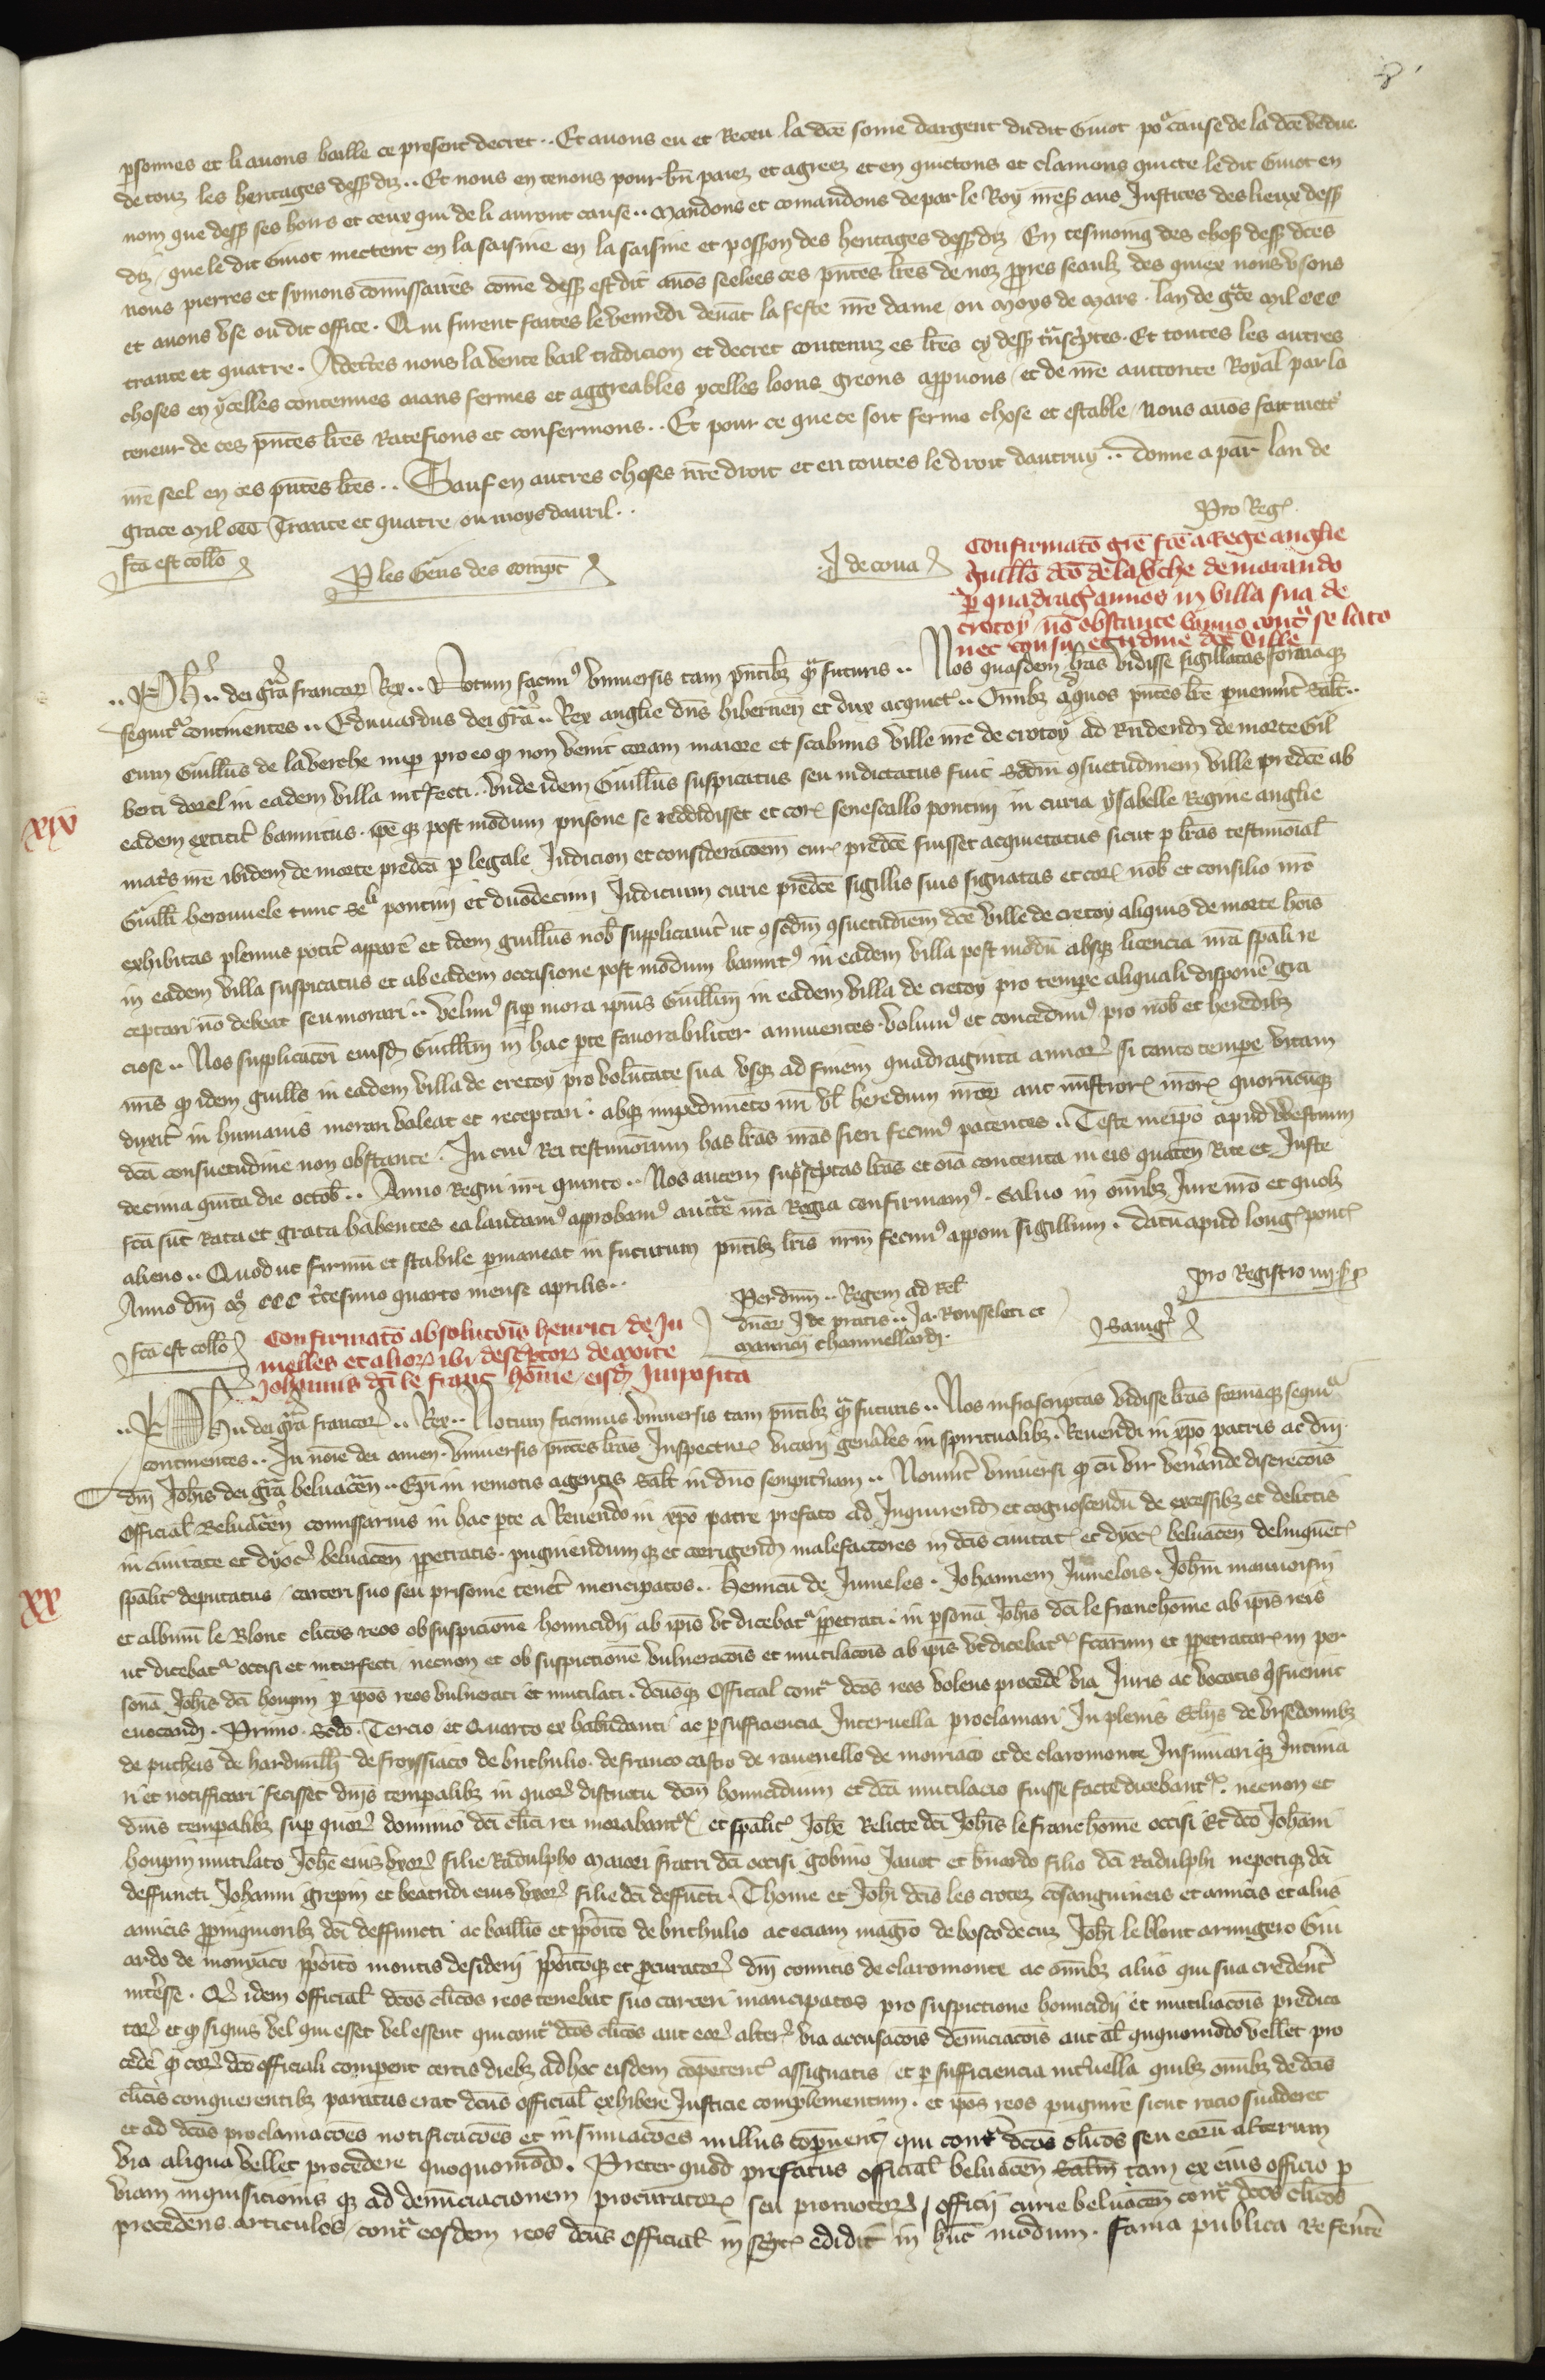 8
psonnes et li avons baille ce present decret .. Et avons eu et Receu la dce some dargent du dit Guiot por cause de la dce vendue
de touz les heritages dessus diz .. Et nous en tenons pour bn paiez et agreez et en quictons et clamons quicte le dit Guiot en
nom que dess ses hoirs et ceux qui de li auront cause .. Mandons et comandons de par le Roy aus Justices des lieux dess
diz / que le dit Guiot mectent en la saisine en la saisine et possession des heritages dess diz En tesmoing des choses dess dces
nous pierres et symons commissaires come dess est dit avos seelees ces pntes lres de noz ppres seaulx des quiex nous vsons
et avons vse ou dit office . Qui furent faites le venredi devat la feste nre dame / ou Moys de Mars . lan de gce Mil ccc
trante et quatre . Adectes nous la vente bail tradicion et decret contenuz es lres cy dess tnscptes . Et toutes les autres
choses en ycelles contenues aians fermes et aggreables ycelles loons greons appuons / et de nre auctorite Royal par la
teneur de ces pntes lres Ratefions et confermons .. Et pour ce que ce soit ferme chose et estable / nous avos fait mett
nre seel en ces pntes lres .. Sauf en autres choses nre droit et en toutes le droit dautruy .. donne a par lan de
grace Mil ccc Trante et quatre ou moys davril ..
Pro Reg
fca est collo
P les Gens des compt
J de cova
Confirmato gre fce a Rege anglie
Guillo dco de la Vche de morando
p quadrag annos in villa sua de
crotoy / no obstante banno cont se lato
nec consuetudine dce ville
xix
.. Ph .. dei gra francor Rex .. Notum facim vniversis tam pntibz q futuris .. Nos quasdem lras vidisse sigillatas formaq
sequit continentes .. Edouardus dei gra .. Rex anglie dns hibernen et dux acquet .. Omibz ad quos pntes lre pvenint Salt ..
Cum Guillus de la verche nup pro eo q non venit coram maiore et scabinis ville nre de crotoy ad Rndend de morte Gil
berti dorel in eadem villa intfecti . vnde idem Guillus suspicatus seu indictatus fuit Scdm 9suetudinem ville predce ab
eadem extitit bannitus . ipe q post modum prisone se reddidisset et cor senescallo pontivi in curia ysabelle Regine anglie
matis nre ibidem de morte predca p legale Judicion et consideracoem cur predce fuisset acquietatus sicut p lras testimoial
Guilli berouvele tunc se li pontivi et duodecim Judicium curie predce sigillis suis signatas et cor nob et consilio nro
exhibitas plenius potit appare et idem guillus nob supplicavit ut 9 scdm 9suetudiem dce ville de cretoy aliquis de morte hois
in eadem villa suspicatus et ab eadem occasione post modum bannit in eadem villa post modu absq licencia nra spali re
ceptari no debeat seu morari .. velim sup mora ipius Guillmi in eadem villa de cretoy pro tempe aliquali dispone gra
ciose .. Nos supplicacoi eiusd Guillmi in hac pte favorabiliter annuentes . volum et concedim pro nob et heredibz
nris q idem guills in eadem villa de cretoy pro voluntate sua vsq ad finem quadraginta annor si tanto tempe vitam
duxit in humanis morari valeat et receptari . absq impedimeto nri vl heredum nror aut mistror nror quorucuq
dca consuetudine non obstante . In cui Rei testimonium has lras nras fieri fecim patentes .. Teste meipo apud Westmm
decima quita die octob .. Anno Regni nri quinto .. Nos autem supscptas lras et oia contenta in eis quaten Rite et Juste
fca sut Rata et grata habentes ea laudam approbam auctte nra Regia confirmam . Salvo in omibz Jure nro et quolz
alieno .. Quod ut firmu et stabile pmaneat in futurum pntibz lris nrm fecim apponi sigillum . datu apud long pont
Anno dni M ccc tcesimo quarto mense aprilis ..
pro Registro
fca est collo
Per dnm .. Regem ad Rel
dnor J de pratis .. Ja . Rousseleti et
mauricii chamuellardi .
Savig
Confirmato absolucois henrici de Ju
melles et alior ibi descptor de morte
Johannis dci le franc home eisd Imposita
xx
.. Ph dei gra francor .. Rex .. Notum facimus vniversis tam pntibz q futuris .. Nos infrascriptas vidisse lras formaq sequit
continentes .. In noie dei amen . vniversis pntes lras Inspectur vicarii genales in spiritualibz . Reverendi in xpo patris ac dni
dni Johis dei gra belvacen .. Epi in remotis agentis Salt in dno sempitnam .. Noverit vniversi q cu vir venande discrecois
Official Belvacen comissarius in hac pte a Reverendo in xpo patre prefato ad Inquirend et cognoscendu de excessibz et delictis
in civitate et dyoc belvacen ppetratis . pugniendumq et corrigend malefactores in dcis civitat et dyoc belvacen delinquet
spalit deputatus / carceri suo seu prisonie tenet mencipatos .. henricu de Jumeles . Johannem Jumelois . Johm mauvoisin
et albinu le Blont clicos reos ob suspicione homicidii ab ipis vt dicebat ppetrati . in psona Johis dci le franchome ab ipis reis
ut dicebat occisi et interfecti / necnon et ob suspictione vulneracois et mutilacois ab ipis vt dicebat fcarum et ppetratar in per
sona Johis dci houpin p ipos reos vulnerati et mutilati . dcusq Official cont dcos reos volens procede via Juris ac vocatis q fuerint
evocandi . Primo . Scdo . Tercio et Quarto ex habudanti ac p sufficiencia Intervalla proclamari In plenis Ecliis de vrsedonibz
de pucheis de hardivillr de froyssiaco de britbulio . de franco castro de ravenello de moriaco et de claromonte Insinuari q Intima
ri et notifficari fecisset dnis temporalibz in quor districtu dcm homicidium et dca mutilacio fuisse facte dicebant . necnon et
dnis temporalibz sup quor dominio dci clici rei morabant et spalit Johe Relicte dci Johis le franchome occisi Et dco Johani
houpin mutilato Johe eius vxor filie Radulpho Maiori fratri dci occisi gobino Javot et bnardo filio dci Radulphi nepotiq dci
deffuncti Johanni grepin et beatrici eius vxor filie dci deffucti . Thome et Johi dcis les crotez cosanguineis et amicis et aliis
amicis ppinquioribz dci deffuncti ac baillio et pposito de britbulio ac eciam magro de bosco de cuz Johi le blont armigero Gui
ardo de monyaco pposito montis desiderii ppositoq et pcurator dni comitis de claromonte ac omibz aliis qui sua credent
intesse . Q idem official dcos clicos reos tenebat suo carceri mancipatos pro suspictione homicidii et mutiliacois predica
tor et q siquis vel qui esset vel essent qui cont dcos clicos aut eor alter via accusacois denuciacois aut al quoquomodo vellet pro
cede q cor dco officiali compent certis diebz ad hoc eisdem copetent assignatis / et p sufficiencia intvalla quibz omibz de dcis
clicis conquerentibz paratus erat dcus official exhibere Justicie complementum . et ipos reos pugnire sicut racio suaderet
et ad dcas proclamacoes notificacoes et insinuacoes nullus compuent qui cont dcos clicos seu eoru alterum
via aliqua vellet procedere quoquomodo . Preter quod prefatus official belvacen tam ex eius officio p
viam inquisicionis q ad denunciacionem procurator seu promotor officii curie belvacen cont dcos clicos
procedens articulos / cont eosdem reos dcus official in scpt edidit in huc modum . Fama publica Referete